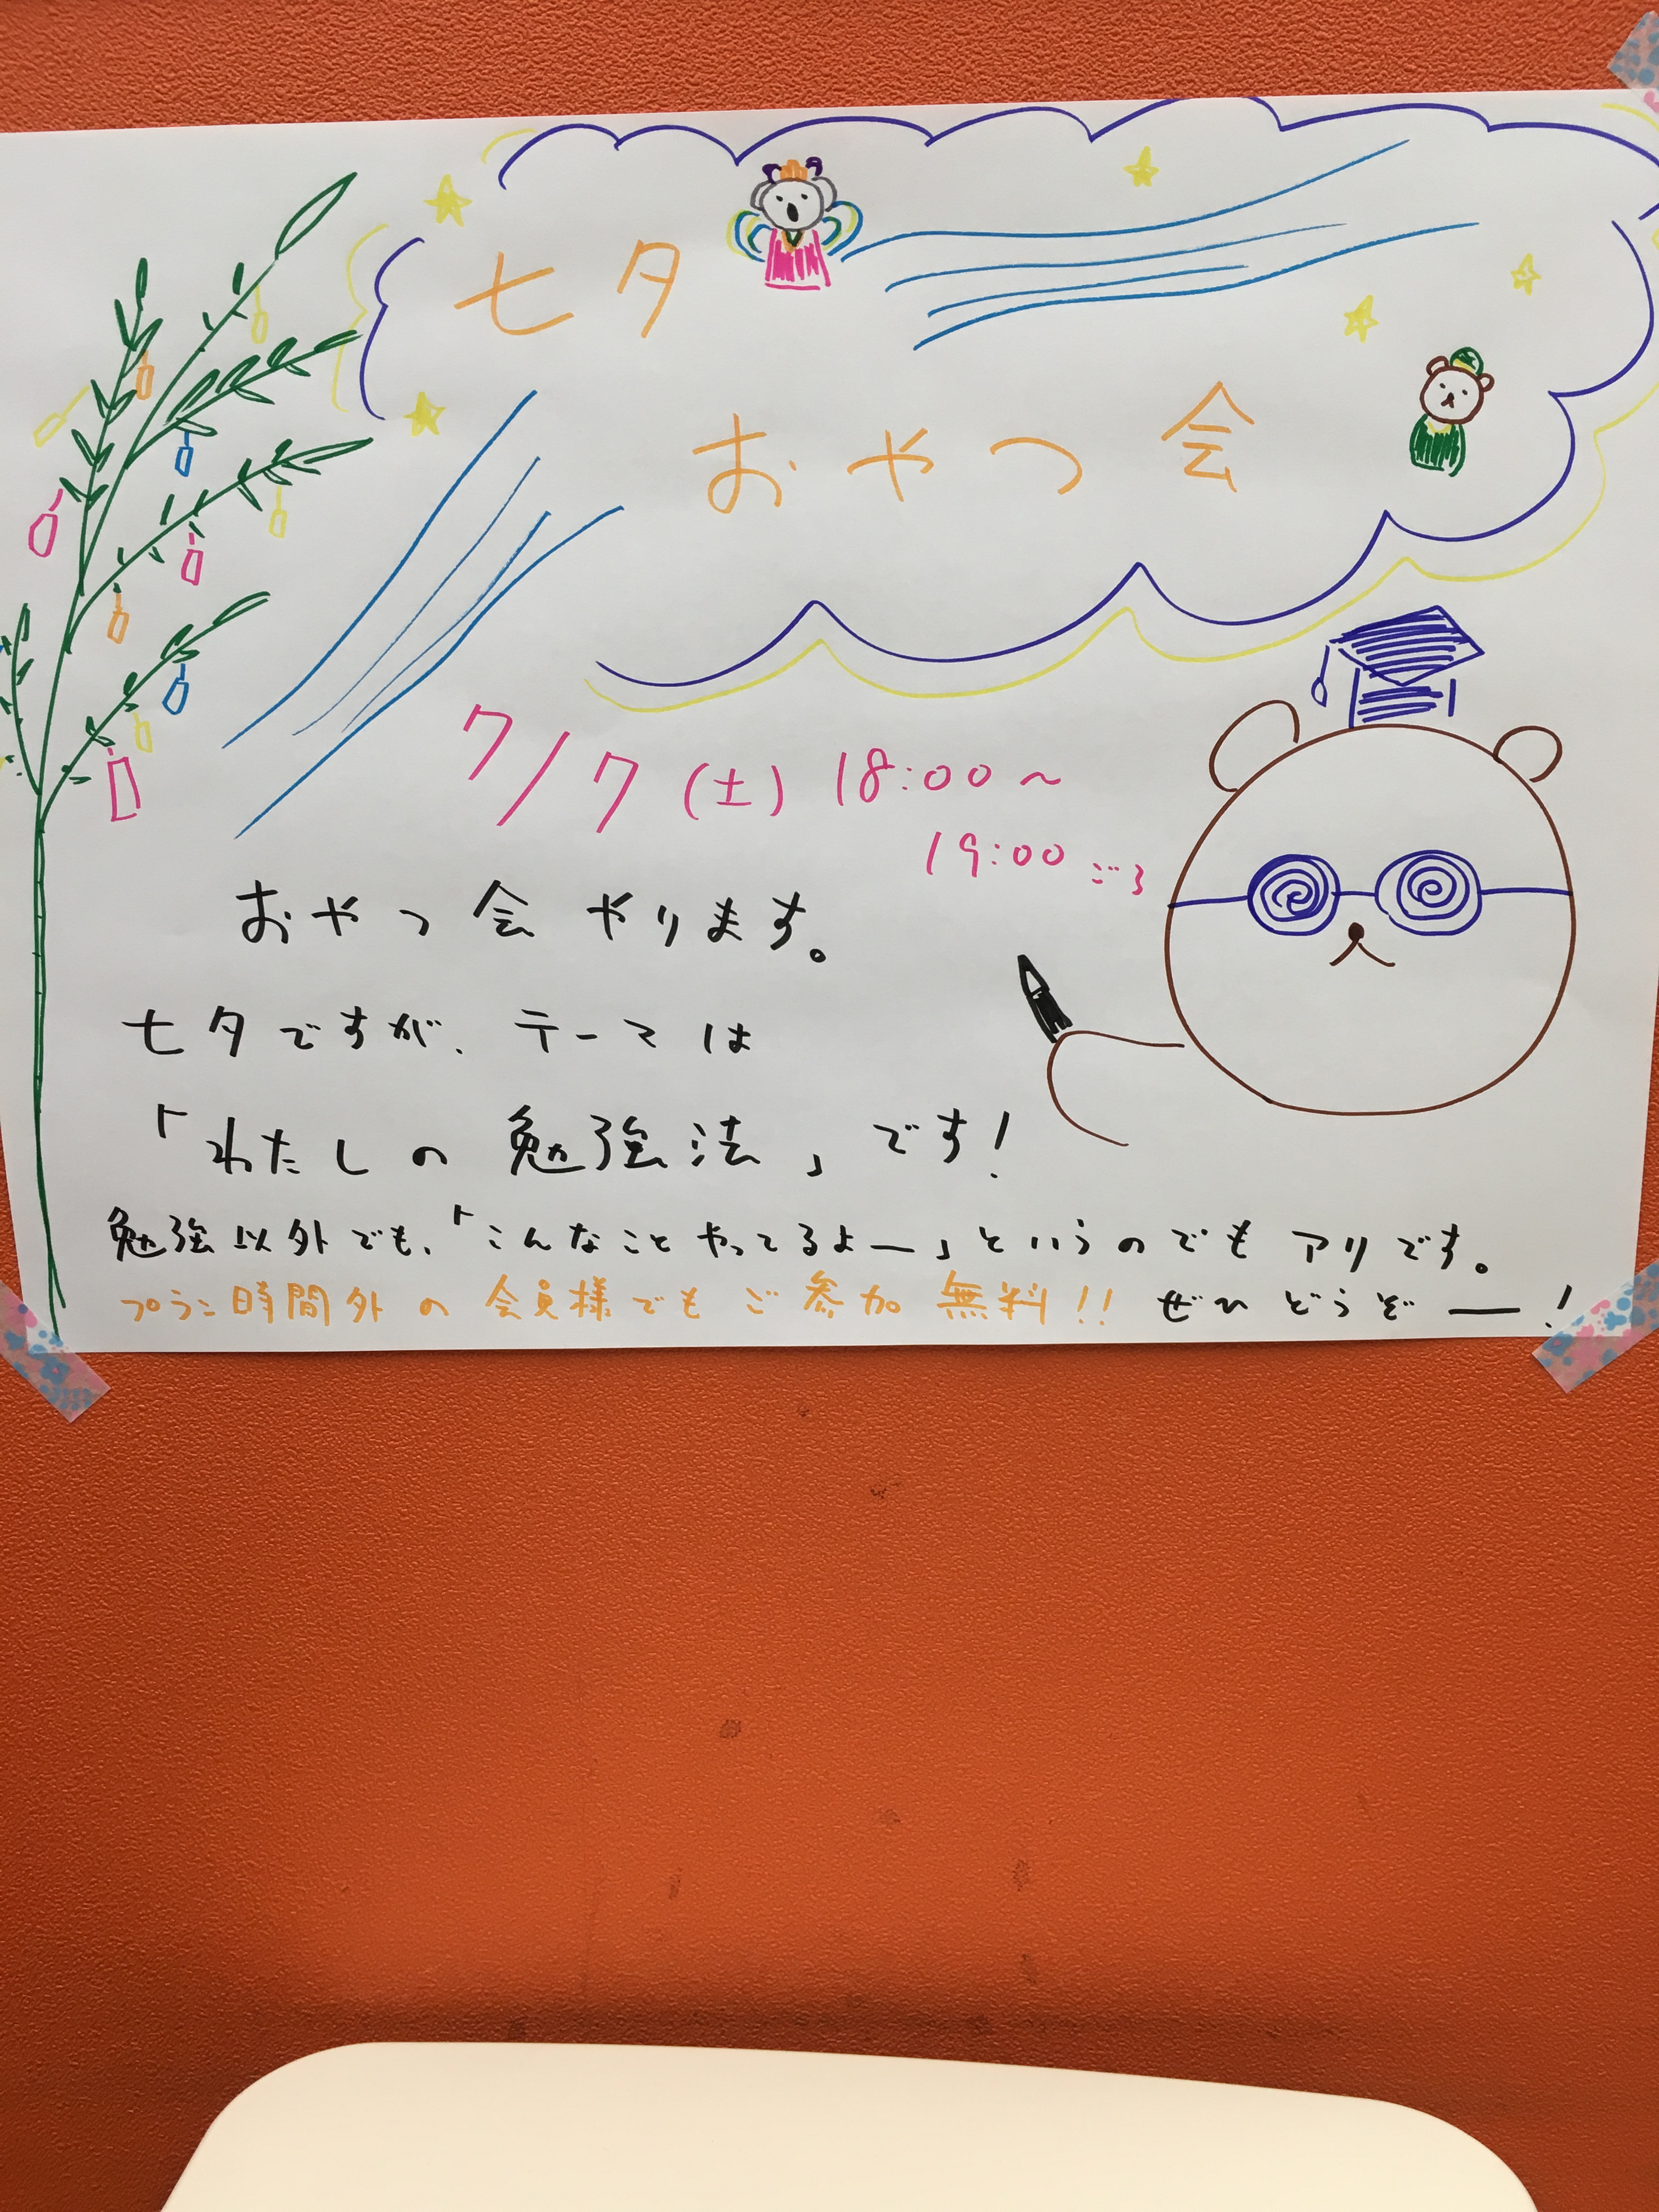 七夕
おやつ会
7/7(土) 18:00〜
19:00ごろ
おやつ会やります。
七夕ですが、テーマは
「わたしの勉強法」です!
勉強以外でも、「こんなことやってるよー」というのでもアリです。
プラン時間外の会員様でもご参加無料!! ぜひどうぞー!